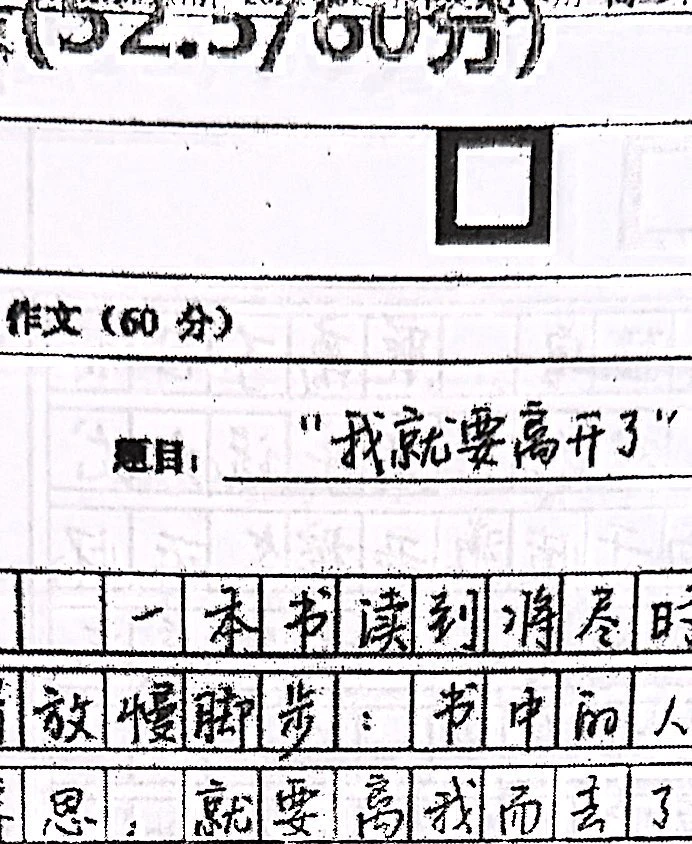 (52.5/60分)
作文（60 分）
题目： “我就要离开了”
一本书读到将尽时
放慢脚步：书中的人
思，就要离我而去了